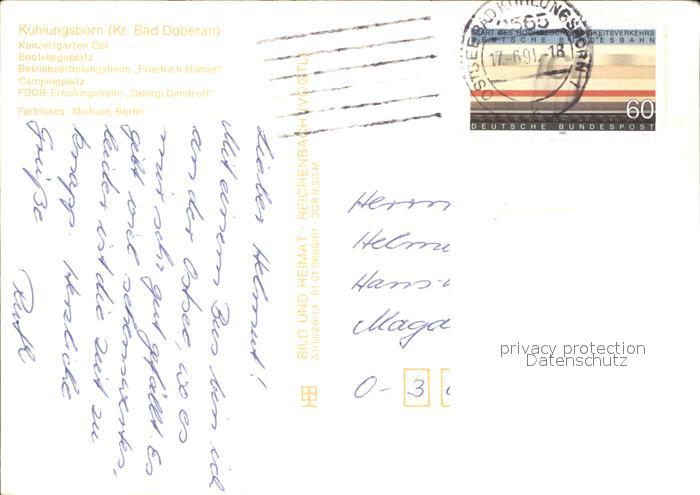 Kühlungsborn (Kr. Bad Doberan)
Konzertgarten Ost
Bootsliegeplatz
Betriebserholungsheim „Friedrich Hähnel"
Campingplatz
FDGB-Erholungsheim „Georgi Dimitroff"
Farbfotos: Michael, Berlin
Lieber Helmut!
Mit einem Bus bin ich
an der Ostsee, wo es
mir sehr gut gefällt. Es
gibt viel sehenswertes,
leider ist die Zeit zu
knapp. Herzliche
Grüße
Ruth
BILD UND HEIMAT · REICHENBACH (VOGTL)
A1/1026/13 · 01 01 0605/01 · DDR 0,20 M
OSTSEEBAD KÜHLUNGSBORN 1
2565
17.-6.91.-18
START DES HOCHGESCHWINDIGKEITSVERKEHRS
DEUTSCHE BUNDESBAHN
60
DEUTSCHE BUNDESPOST
1991
Herrn
Helmu
Hans-
Magd
O- 3
privacy protection
Datenschutz